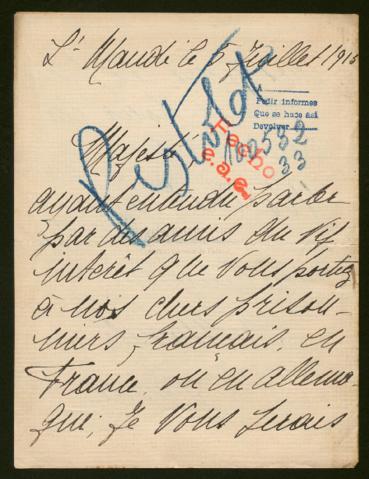 St Mandé le 5 Juillet 1915
Pedir informes
Que se hace así
Devolver
102532
33
Majesté
ayant entendu parler
par des amis du vif
intérêt que Vous portez
à nos chers prison-
niers français, en
France, ou en allema-
gne, Je Vous serais